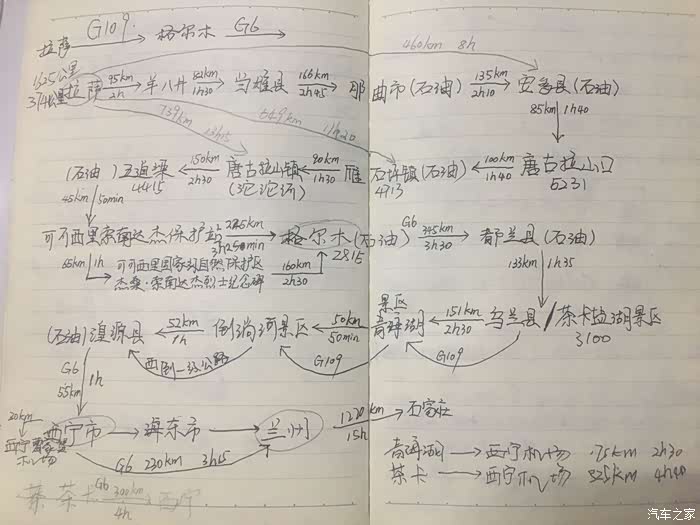 拉萨 G109. 格尔木 G6
460km 8h
1625公里
3741公里 拉萨 95km 2h 羊八井 82km 1h30 当雄县 166km 2h45 那曲市(石油) 135km 2h10 安多县(石油)
739km 13h15 649km 11h20 85km 1h40
(石油)五道梁 4415 150km 2h30 唐古拉山镇 (沱沱河) 90km 1h30 雁石坪镇(石油) 4713 100km 1h40 唐古拉山口 5231
45km 50min
可可西里索南达杰保护站 225km 3h50min 格尔木(石油) 2815 G6 345km 3h30 都兰县(石油)
65km 1h 可可西里国家级自然保护区 杰桑·索南达杰烈士纪念碑 160km 2h30 133km 1h35
(石油)湟源县 52km 1h 倒淌河景区 50km 50min 景区 青海湖 151km 2h30 乌兰县/茶卡盐湖景区 3100
西倒一级公路 G109 G109
G6 55km 1h
20km 西宁市 海东市 兰州 1220km 15h 石家庄
西宁曹家堡机场 G6 230km 3h15
青海湖 西宁机场 175km 2h30
茶卡 西宁机场 325km 4h40
茶 茶卡 G6 300km 4h 西宁
汽车之家